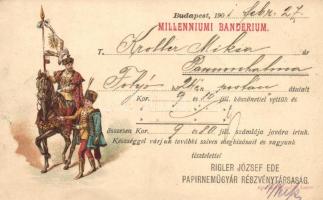 Budapest, 1901 febr. 27.
MILLENNIUMI BANDERIUM.
T. Kroller Miksa úr
Pannonhalma
Folyó 24én postán átutalt
Kor. 9 f. 10 fill. köszönettel vettük és
összesen Kor. 9 f. 10 fill. számlája javára irtuk.
Készséggel várjuk további szives megbízásait és vagyunk
tisztelettel
RIGLER JÓZSEF EDE
PAPIRNEMŰGYÁR RÉSZVÉNYTÁRSASÁG.